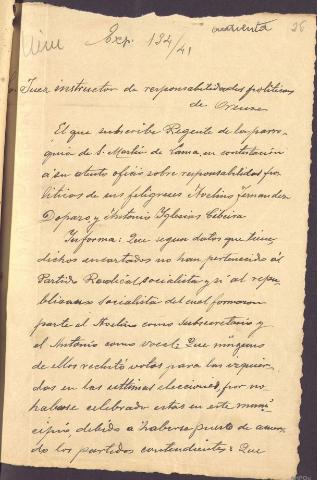 Exp. 134/41
cuarenta 26
Juez instructor de responsabilidades politicas
de Orense
El que subscribe Regente de la parro-
quia de S. Martin de Lama, en contestación
a su atento oficio sobre responsabilidades po-
liticas de sus feligreses Avelino Fernandez
Dopazo y Antonio Iglesias Cibeira
Informa: Que segun datos que tiene,
dichos encartados no han pertenecido al
Partido Radical socialista y si al repu-
blicano socialista del cual formaron
parte el Avelino como Subsecretario y
el Antonio como vocal: Que ninguno
de ellos reclutó votos para las izquier-
das en las ultimas elecciones, por no
haberse celebrado estas en este muni-
cipio, debido a haberse puesto de acuer-
do los partidos contendientes: Que